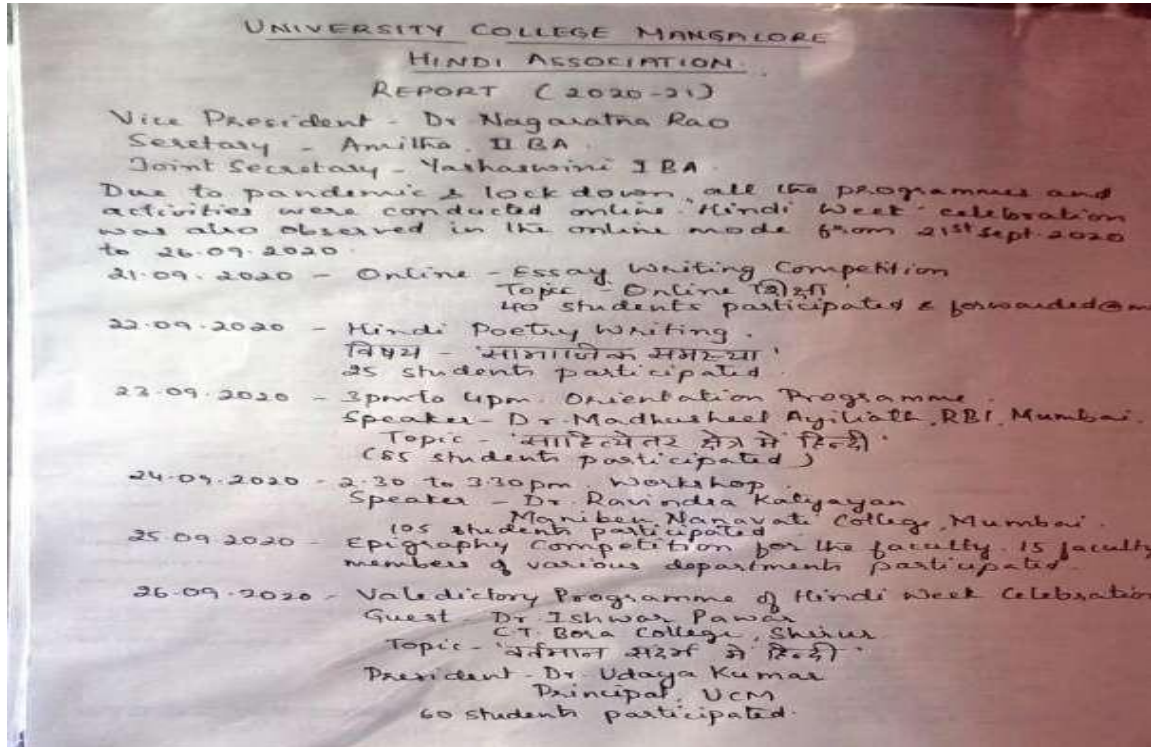 UNIVERSITY COLLEGE MANGALORE
HINDI ASSOCIATION.
REPORT (2020-21)
Vice President - Dr Nagaratna Rao
Seretary - Amitha. II BA.
Joint Secretary - Yashaswini I BA.
Due to pandemic & lock down all the programmes and
activities were conducted online. 'Hindi Week' celebration
was also observed in the online mode from 21st sept. 2020
to 26.09.2020.
21.09.2020 - Online - Essay Writing Competition
Topic - 'Online शिक्षा'
40 students participated & forwarded
22.09.2020 - Hindi Poetry Writing.
विषय - 'सामाजिक समस्या'
25 students participated.
23.09.2020 - 3pm to 4pm. Orientation Programme.
Speaker - Dr. Madhusheel Ayillath, RBI, Mumbai.
Topic - 'साहित्येतर क्षेत्र में हिन्दी'
(85 students participated)
24.09.2020 - 2.30 to 3.30pm. Workshop.
Speaker - Dr. Ravindra Katyayan
Maniben Nanavati College, Mumbai.
105 students participated.
25.09.2020 - Epigraphy Competition for the faculty. 15 faculty
members of various departments participated.
26.09.2020 - Valedictory Programme of Hindi Week Celebration
Guest - Dr Ishwar Pawar
C.T. Bora College, Shirur
Topic - 'वर्तमान संदर्भ में हिन्दी'
President - Dr Udaya Kumar
Principal, UCM
60 students participated.